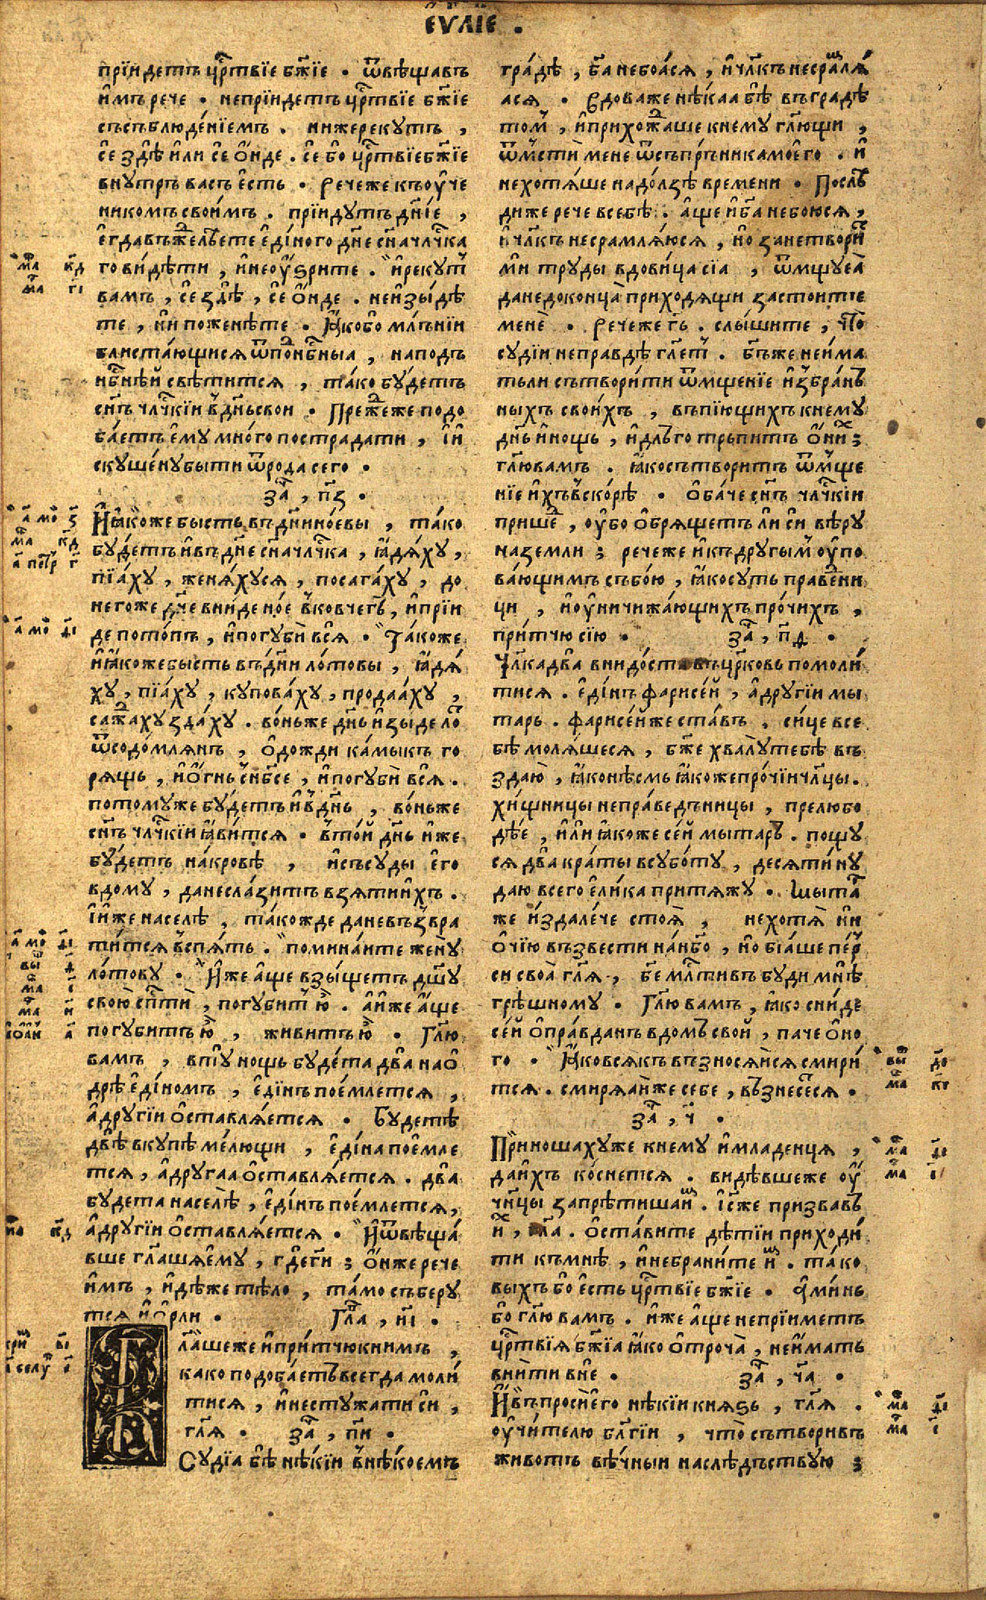 ЕѴЛІЕ .
прїидетъ цр҃твїе бж҃їе . ѿвѣщавъ
имъ рече . непрїидетъ цр҃твїе бж҃їе
съсъблюде́нїемъ . нижерекутъ ,
се здѣ или се о́нде . се бо цр҃твїебж҃їе
внутръ васъ есть . Речеже къоу҆че
никомъ свои́мъ . прїидутъ дн҃їе ,
егдавъжелѣете еди́ного дн҃е сн҃ачл҃чка
го ви́дѣти , инеоу́ѕрите . Ирекут̾
вамъ , се здѣ , се о́нде . неизы́дѣ
те , ни поженѣте . Ꙗкобо мл҃ънїи
блиста́ющися ѿпо́нбн҃ныа , наподъ
нбн҃нѣй свѣтится , та́ко бу́детъ
сн҃ъ чл҃чкїи вд҃нь свои . Преж̾еже подо
ба́етъ ему мно́го пострадати , и и
скуше́нубыти ѿрода сего .
за҃ , п҃з .
Иꙗкоже бысть въдн҃иино́евы , та́ко
бу́детъ ивъ дн҃е сн҃ачл҃чка , ꙗдя́ху ,
пїа́ху , женя́хуся , посага́ху , до
негоже дн҃е вни́де но́е вковчегъ , ипрїи
де пото́пъ , ипогуби вся . Та́коже
иꙗкожебысть въдн҃и ло́товы , ꙗдя́
ху , пїа́ху , купова́ху , продаа́ху ,
саж̾аху зда́ху . во́ньже дн҃ь изы́де ло̾
ѿсодо́млянъ , одожди ка́мыкъ го
рящь , иогнь снб҃се , ипогуби вся .
потомуже бу́детъ ивд҃нь , во́ньже
сн҃ъ чл҃чкїи ꙗви́тся . вто́й дн҃ь иже
бу́детъ на́кровѣ , исъсу́ды его
вдому , данесла́зитъ взя́тиихъ .
И иже населѣ , та́кожде даневъзвра
ти́тся вспять . помина́ите жену̀
ло́тову . Иже а́ще взы́щетъ дш҃у
свою сп҃сти , погуби́т ю . аи́же а́ще
погуби́тъ ю , живи́тъ ю . Гл҃ю
вамъ , вту̾ нощь бу́дета два нао
дрѣ еди́номъ , еди́нъ пое́млется ,
адругїи оставля́ется . Бу́детѣ
двѣ вкупѣ ме́лющи , еди́на пое́мле
тся , адругаа оставля́ется . два
бу́дета населѣ , еди́нъ пое́млется ,
адругїи оставля́ется . Иѿвѣща́
вше гл҃аша ему , гдѣ ги҃ ; о́нже рече
имъ , идѣже тѣло , та́мо събе́ру
тся и орли . Гла҃ , и҃і .
Гл҃ашеже ипри́тчюкнимъ ,
како подоба́етъ всегда моли́
тися , инестужати си ,
гл҃я . за҃ , п҃и .
Судїа бѣ нѣкїи внѣкоемъ
гра́дѣ , ба҃ небоя́ся , ичл҃къ несрамля́
ася . Вдоваже нѣкаа бѣ въ градѣ
том̾ , иприхож̾аше кнему гл҃ющи ,
ѿмсти мене ѿсъпе́рника моего . и
нехотя́ше надо́лзѣ времени . Послѣ
диже рече всебѣ . а́ще иба҃ небоюся ,
ичл҃къ несрамля́юся , но занетвори́т
ми труды вдови́ца сїа , ѿмщуеа
данедоконца приходя́щи застоитїе
мене . Речеже гь҃ . слы́шите , что
судїи непра́вдѣ гл҃ет . бг҃ъже неима
тьли сътвори́ти ѿмщенїе избранъ
ныхъ свои́хъ , въпїю́щихъ кнему
дн҃ь инощь , идлъго трьпитъ о́них ;
гл҃ювамъ . ꙗкосътвори́тъ ѿмще
нїе ихъ вско́рѣ . Оба́че сн҃ъ чл҃чкїи
прише̾ , оубо обря́щетъ ли си вѣру
наземли ; речеже икъдругы́м оупо
ва́ющимъ събо́ю , ꙗкосуть праведни
ци , иоуничижа́ющихъ про́чихъ ,
при́тчю сїю . за҃ , п҃ѳ .
Чл҃кадва внидо́ста въцр҃ковь помоли́
тися . еди́нъ фарисе́й , адругїи мы
тарь . фарисе́йже ста́въ , си́це все
бѣ моля́шеся , бж҃е хвалу тебѣ въ
здаю , ꙗконѣсмь ꙗкоже про́чїи чл҃цы .
хи́щницы непра́ведъницы , прелюбо
дѣе , и́ли ꙗкоже се́й мытаръ . пощу
ся два кра́ты всубо́ту , десяти́ну
даю всего ели́ка притяжу . Мыта̾
же издале́че стоя , нехотя ни
о́чїю възвести нанб҃о , но бїаше пе́р
си своа гл҃я , бж҃е мл҃тивъ буди мнѣ
грѣшному . Гл҃ю вамъ , ꙗко сни́де
се́й опра́вданъ вдомъ свой , паче о́но
го . Ꙗко всякъ възнося́йся смири́
тся . смиря́айже себе , възнесе́ся .
за҃ , ч҃ .
Приношахуже кнему имладенця ,
даихъ ко́снется . ви́дѣвшеже оу
чн҃цы запрѣти́ша им . Іс҃же призва́въ
их , гл҃а . оста́вите дѣтїи приходи́
ти къмнѣ , инебрани́те им . тако
выхъ бо есть цр҃твїе бж҃їе . аминь
бо гл҃ю вамъ . иже а́ще непрїиметъ
цр҃твїя бж҃їа ꙗко отроча , неи́мать
вни́ти вне . за҃ , ча҃ .
Ивъпроси его нѣкїи князь , гл҃я .
оучи́телю бл҃гїи , что сътворивъ
живо́тъ вѣ́чныи наслѣдьствую ;